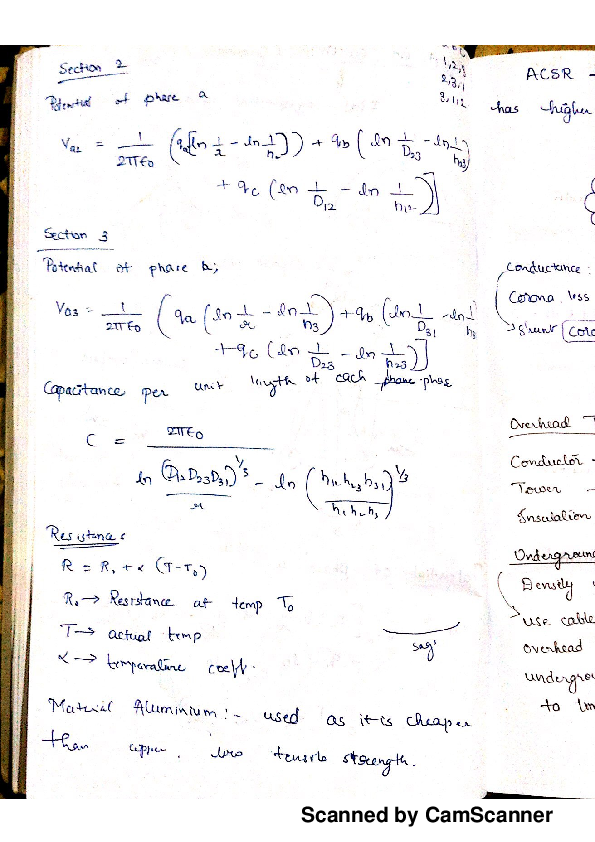 Section 2
Potential of phase a
Va2 = 1/2πε0 (qa[ln 1/r - ln 1/h2]) + qb (ln 1/D23 - ln 1/h23)
+ qc (ln 1/D12 - ln 1/h12)]
Section 3
Potential of phase a;
Va3 = 1/2πε0 (qa (ln 1/r - ln 1/h3) + qb (ln 1/D31 - ln 1/h31
+ qc (ln 1/D23 - ln 1/h23)]
Capacitance per unit length of each phase
C = 2πε0 / ln (D12 D23 D31)^1/3 / r - ln (h12 h23 h31 / h1 h2 h3)^1/3
Resistance:
R = R0 + α (T-T0)
R0 → Resistance at temp T0
T → actual temp
α → temperature coeff.
sag
Material Aluminium :- used as it is cheaper
than copper. low tensile strength.
1,2,3
2,3,1
3,1,2
ACSR -
has higher
Conductance:
Corona loss
→ shunt
Overhead T
Conductor -
Tower -
Insulation
Underground
Densely
→ use cable
overhead
undergrou
to lim
Scanned by CamScanner